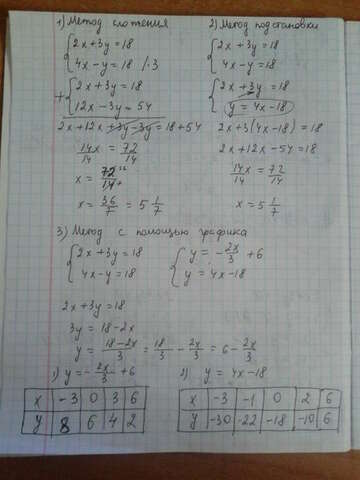 1) Метод сложения
{2x+3y=18
{4x-y=18 /·3
+{2x+3y=18
{12x-3y=54
2x+12x+3y-3y=18+54
14x/14 = 72/14
x = 72/14
x = 36/7 = 5 1/7
2) Метод подстановки
{2x+3y=18
{4x-y=18
{2x+3y=18
{y=4x-18
2x+3(4x-18)=18
2x+12x-54=18
14x/14 = 72/14
x=5 1/7
3) Метод с помощью графика
{2x+3y=18
{4x-y=18
{y=-2x/3+6
{y=4x-18
2x+3y=18
3y=18-2x
y = 18-2x/3 = 18/3 - 2x/3 = 6 - 2x/3
1) y=-2x/3+6
x -3 0 3 6
y 8 6 4 2
2) y=4x-18
x -3 -1 0 2 6
y -30 -22 -18 -10 6